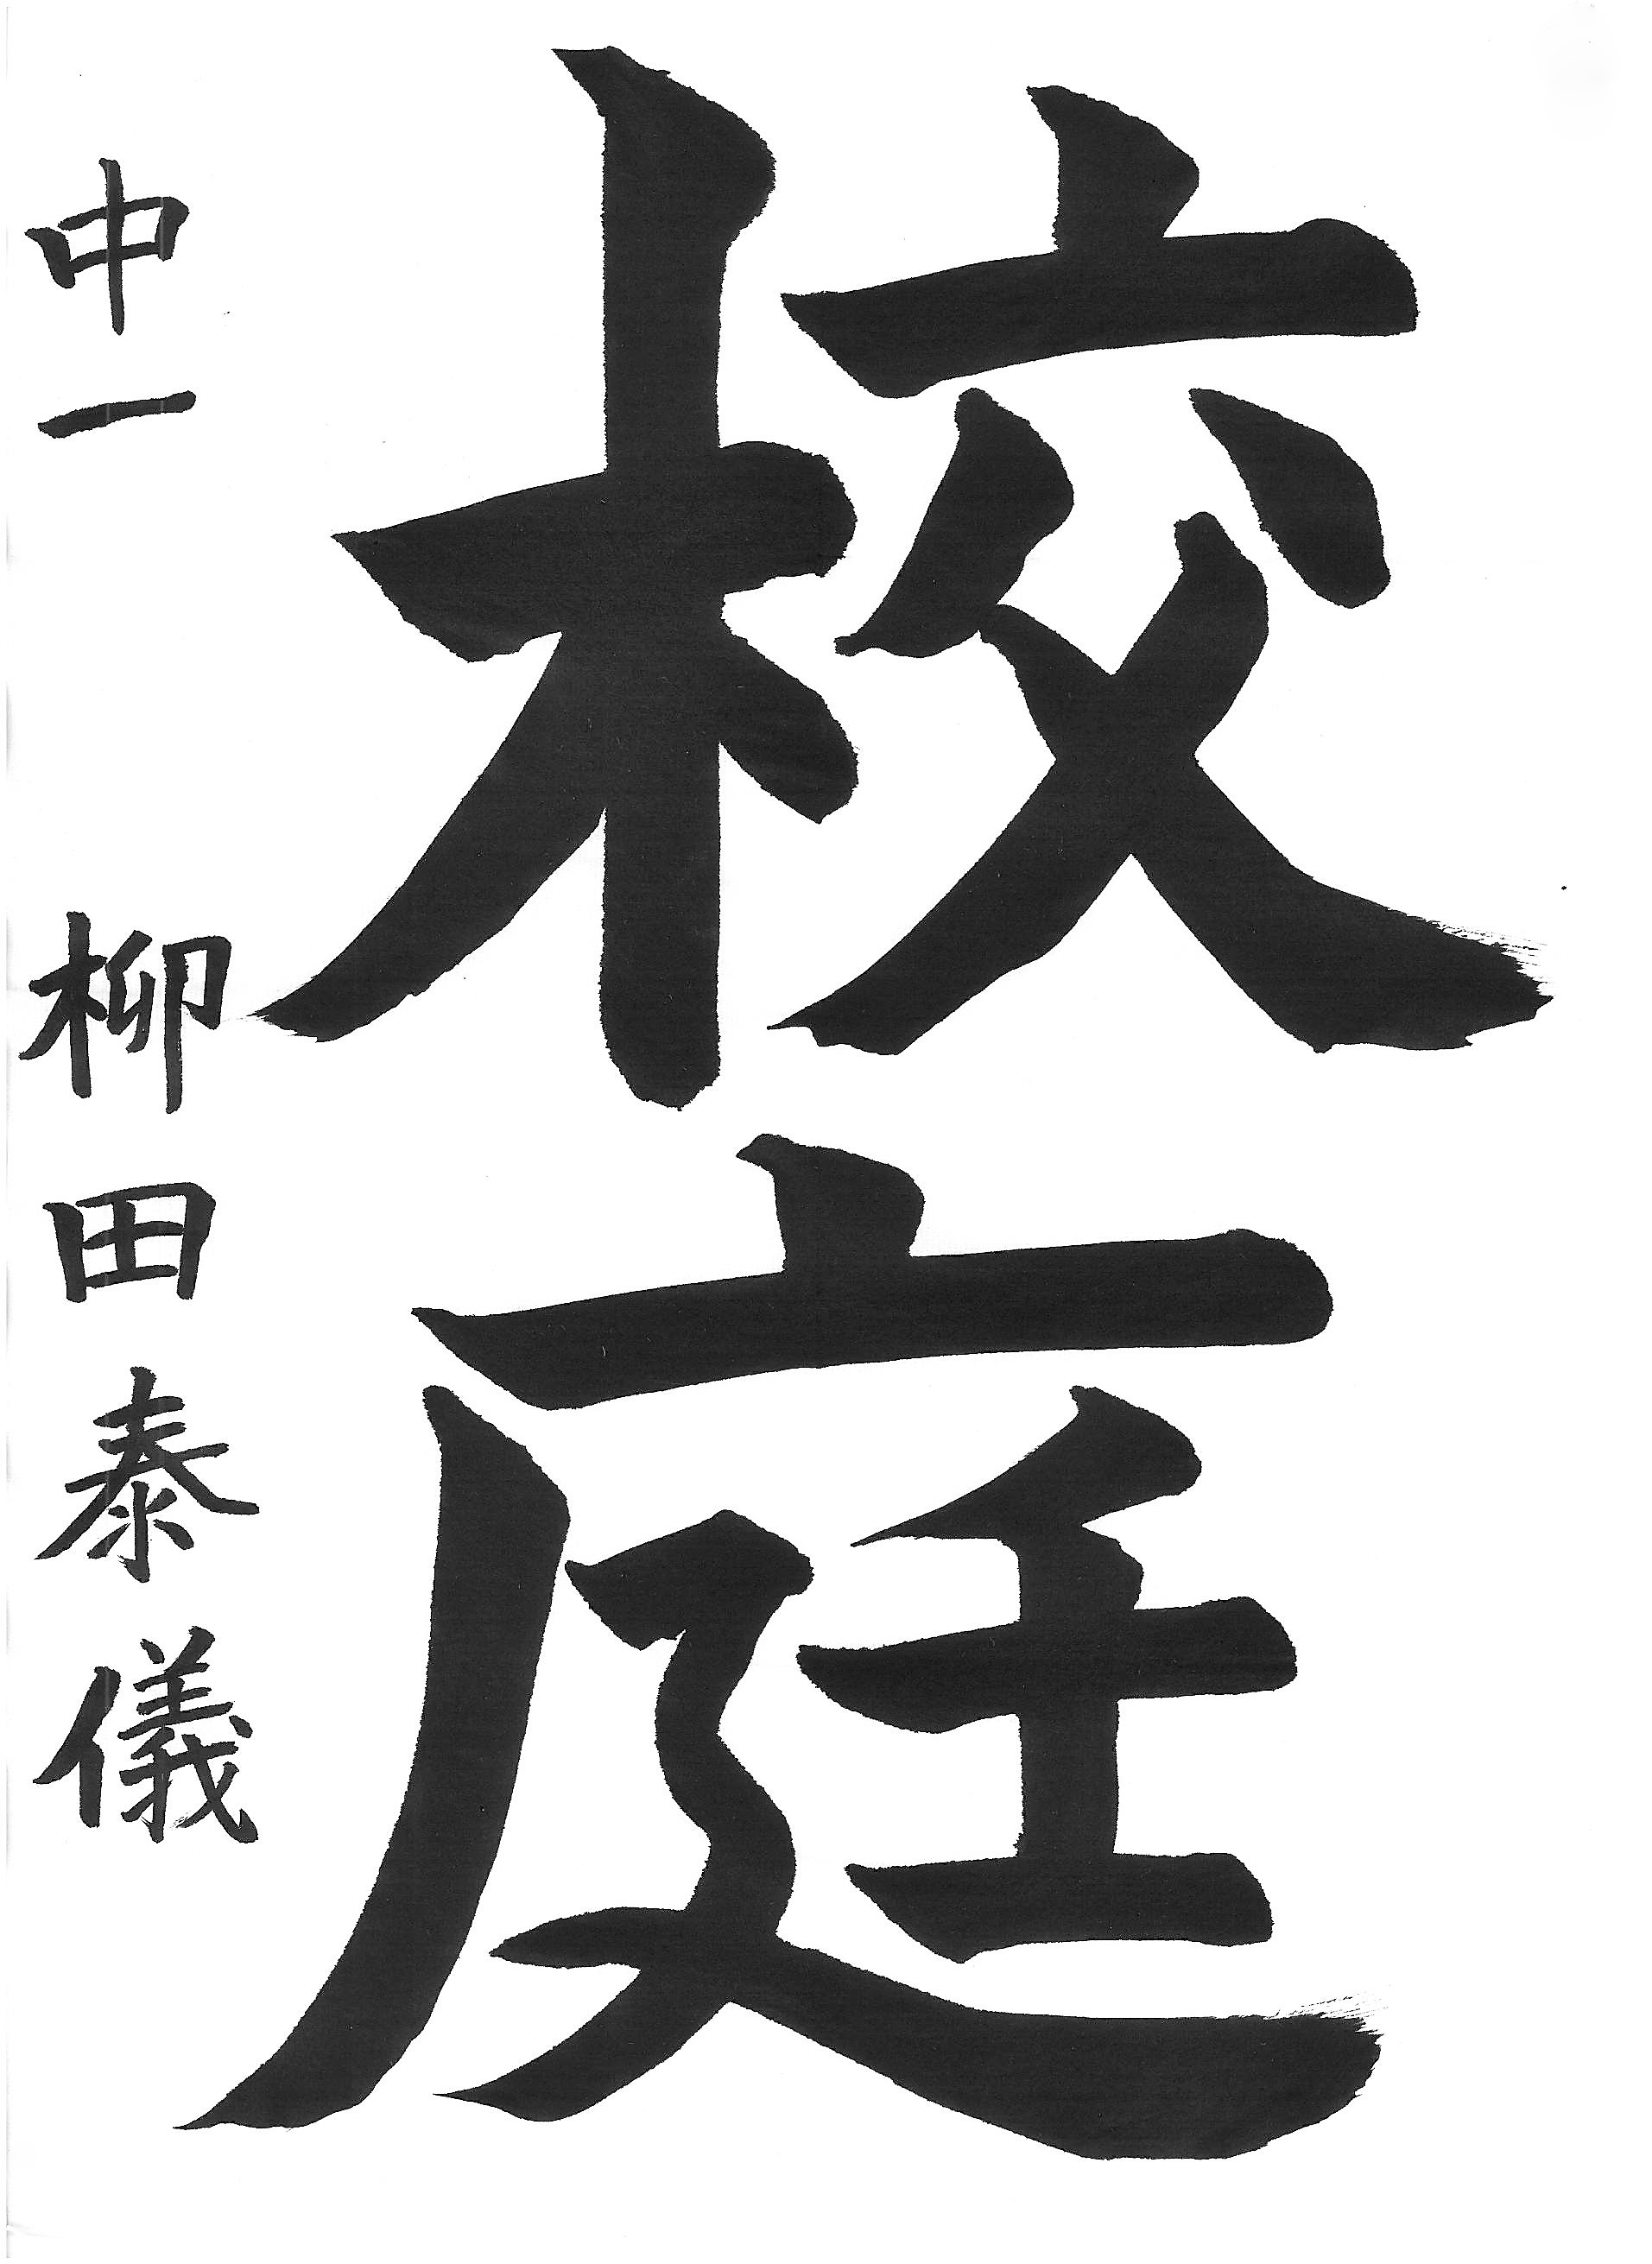 校庭
中一 柳田泰儀